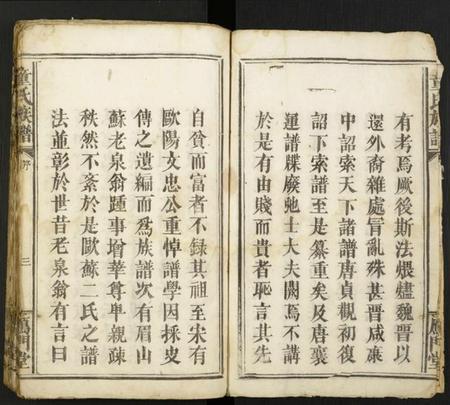 有考焉厥後斯法煨燼魏晉以
還外裔雜處冒亂殊甚晉咸康
中詔索天下諸譜唐貞觀初復
詔下索譜至是纂重矣及唐襄
運譜牒廢弛士大夫闕焉不講
於是有由賤而貴者恥言其先
童氏族譜
序
三
自貧而富者不録其祖至宋有
歐陽文忠公重悼譜學因採史
傳之遺編而爲族譜次有眉山
蘇老泉翁踵事增華尊卑親疎
秩然不紊於是歐蘇二氏之譜
法並彰於世昔老泉翁有言曰
童氏族譜
雁門堂